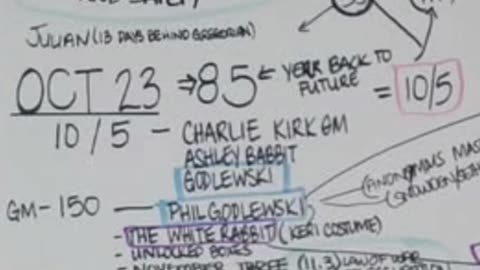 JULIAN (13 DAYS BEHIND GREGORIAN)
OCT 23 ⇒ 85 ← YEAR BACK TO FUTURE = 10/5
10/5 - CHARLIE KIRK GM
ASHLEY BABBIT
GODLEWSKI
GM-150 — PHIL GODLEWSKI
(ANONYMOUS MAS
(SNOWDEN
- THE WHITE RABBIT (KERI COSTUME)
- UNLOCKED BOXES
- NOVEMBER THREE (11.3) LAW OF WAR